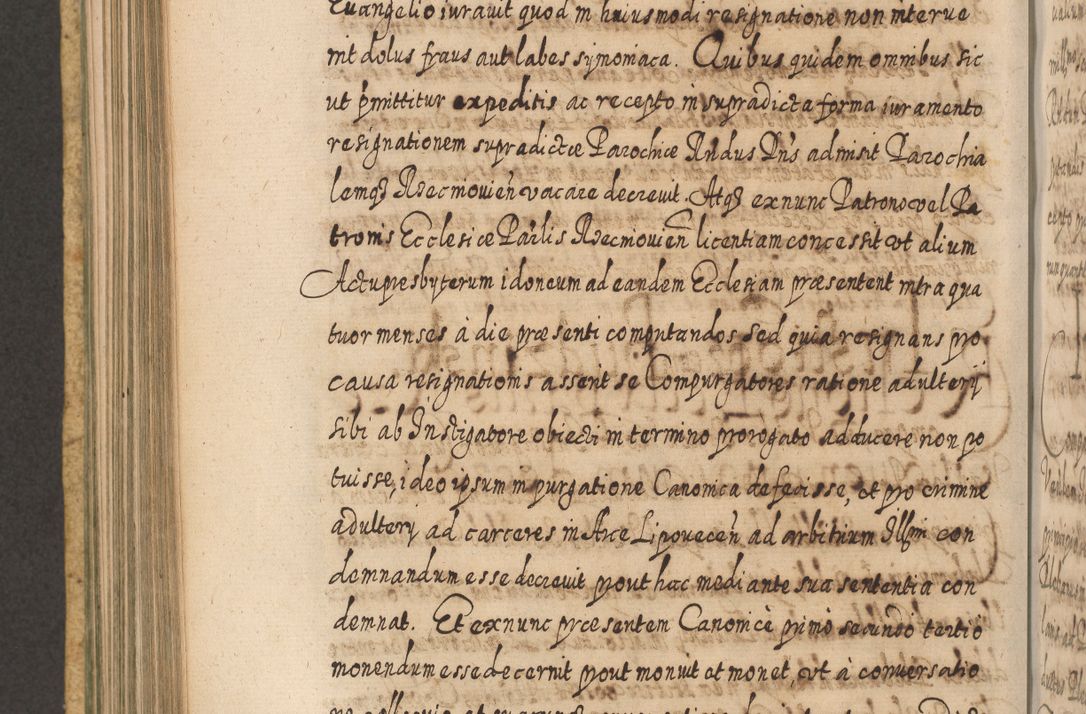 Euangelio iurauit quod in huiusmodi resignatione non interue
nit dolus fraus aut labes symoniaca. Quibus quidem omnibus sic
ut pmittitur expeditis ac recepto in supradicta forma iuramento
resignationem supradictæ Parochiæ Rndus Dns admisit Parochia
lemq3 Rzecmouien vacare decreuit. Atq3 exnunc Patrono vel Pa
tronis Ecclesiæ Parlis Rzecmouien licentiam concessit vt alium
Actu presbyterum idoneum ad eandem Ecclesiam præsentent intra qua
tuor menses à die præsenti computandos sed quia resignans pro
causa resignationis asserit se Compurgatores ratione adulterij
sibi ab Instigatore obiecti in termino prorogato adducere non po
tuisse, ideo ipsum in purgatione Canonica defecisse, et pro crimine
adulterij ad carceres in Arce Lipouecen ad arbitrium Illmi con
demnandum esse decreuit prout hac mediante sua sententia con
demnat. Et exnunc præsentem Canonicè primò secundò tertiò
monendum esse decernit prout monuit et monet, vt à conuersatio